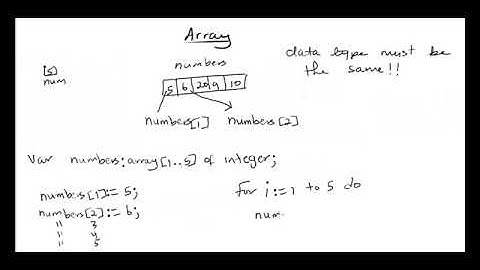 Array
data type must be
the same!!
[5]
num
numbers
5 6 20 9 10
numbers[1] numbers[2]
Var numbers:array[1..5] of integer;
numbers[1]:= 5;
numbers[2]:= 6;
" 3
" 4
" 5
for i:=1 to 5 do
num